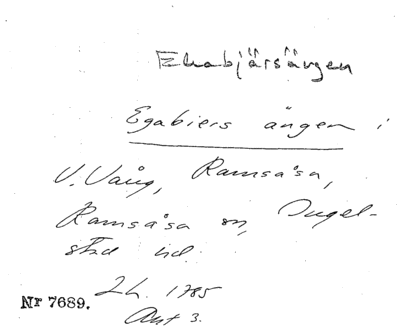 Ekabjärsängen
Egabiers ängen i
V. Vång, Ramsåsa,
Ramsåsa sn, Ingel-
stad hd.
Lh. 1785
Nr 7689.
Akt 3.